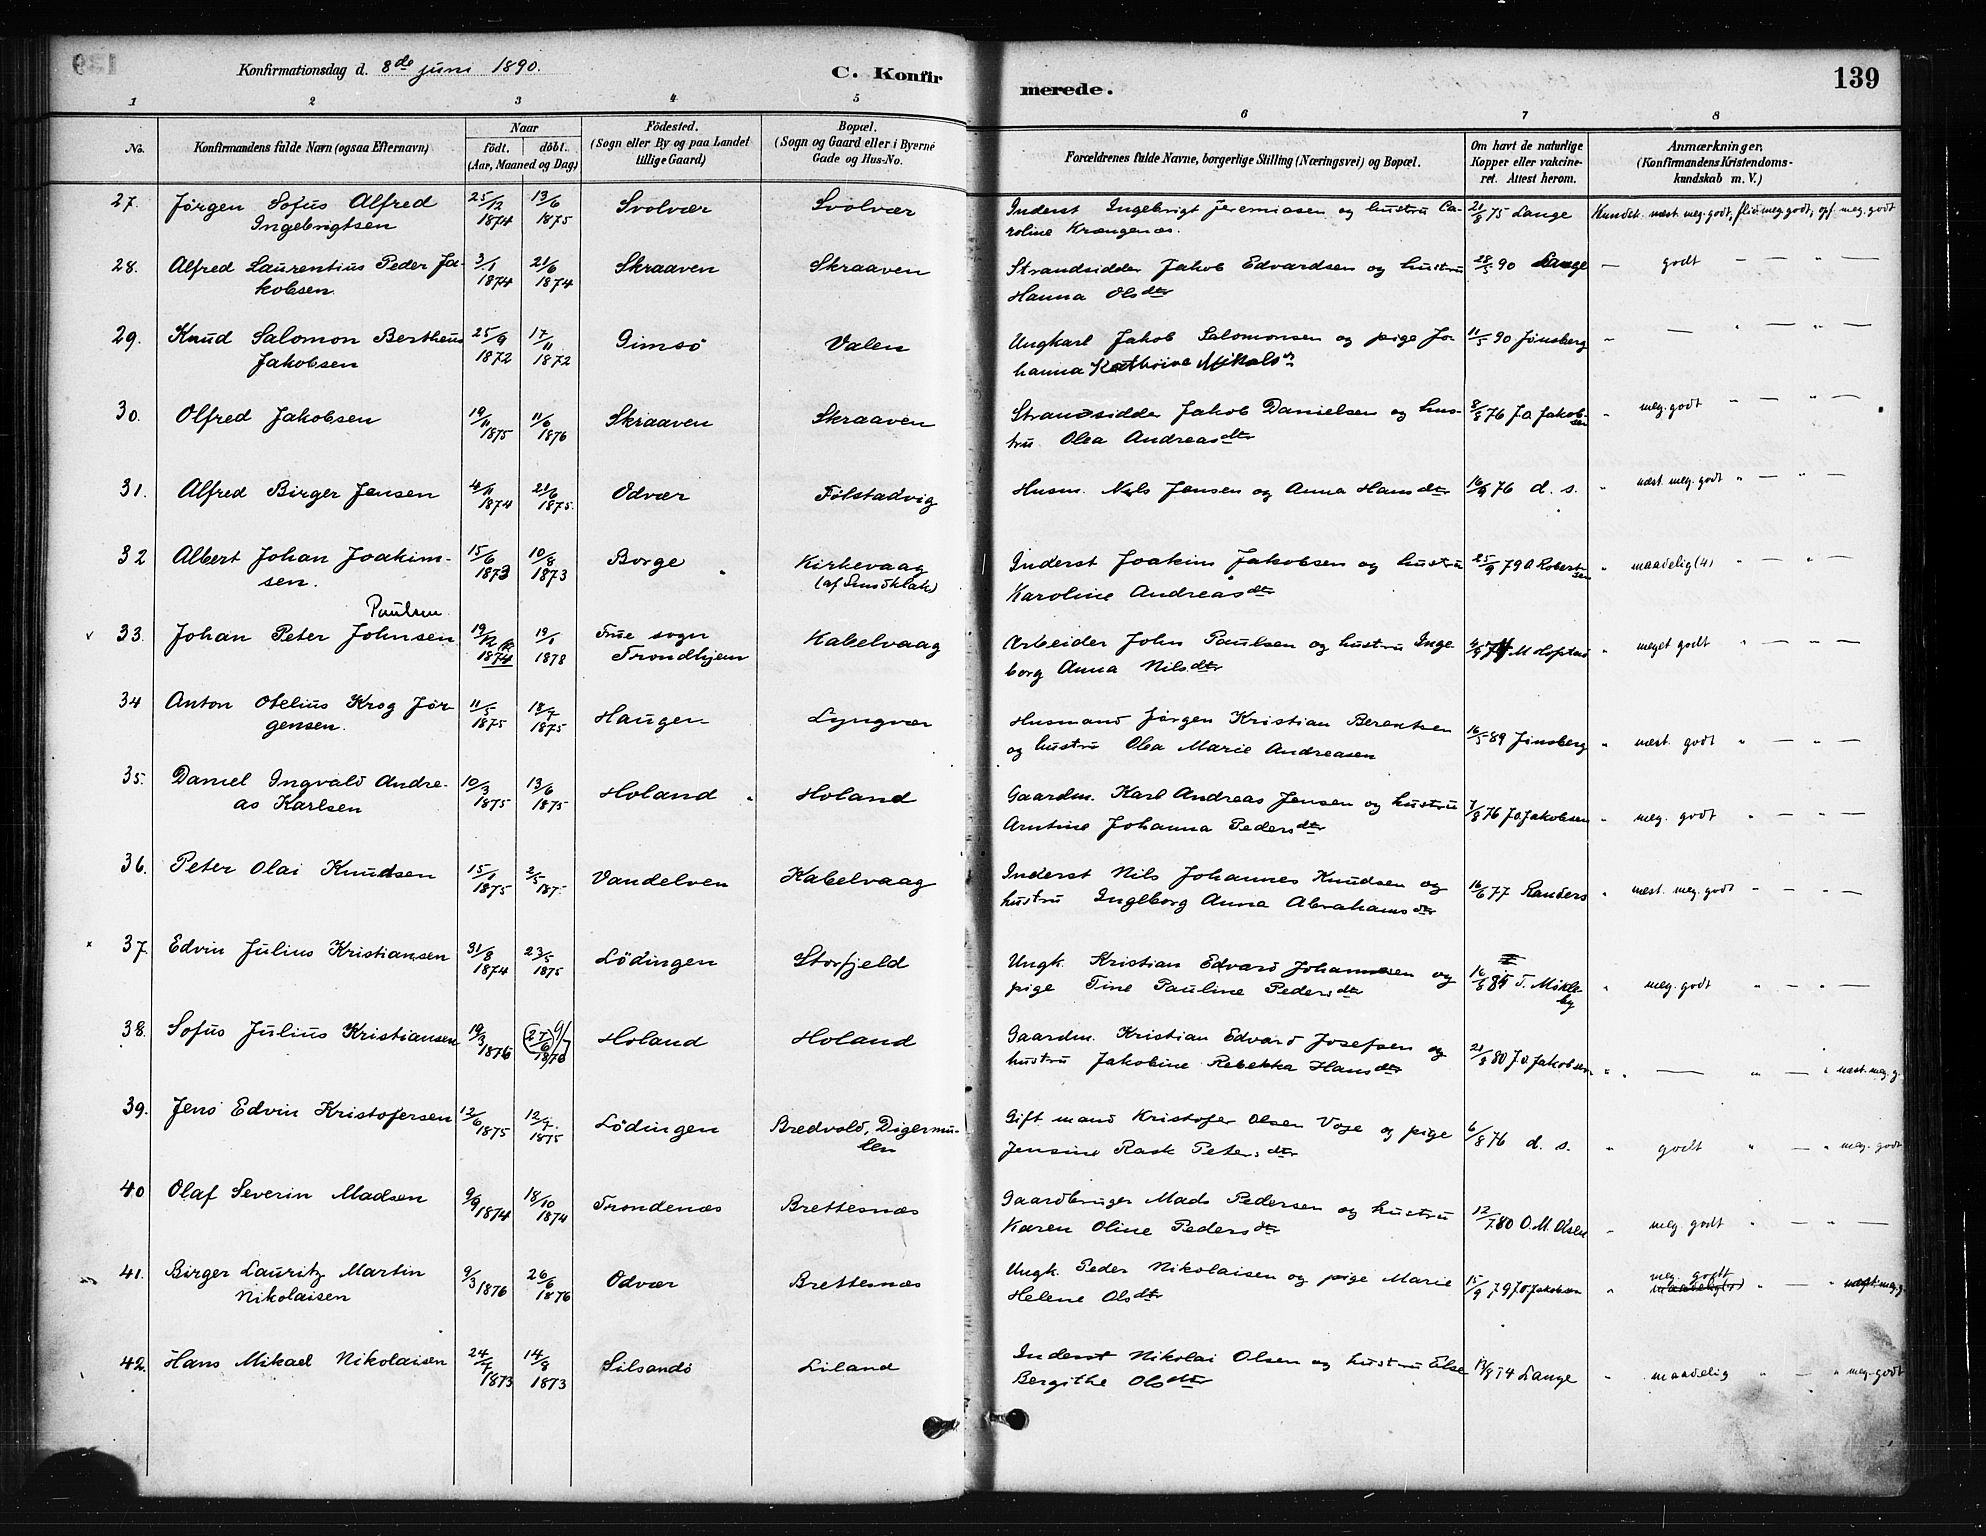 Konfirmationsdag d. 8de juni 1890.
C. Konfirmerede.
139
1 2 3 4 5 6 7 8
No.
Konfirmandens fulde Navn (ogsaa Efternavn)
Naar
födt. döbt.
(Aar, Maaned og Dag)
Födested.
(Sogn eller By og paa Landet
tillige Gaard)
Bopæl.
(Sogn og Gaard eller i Byerne
Gade og Hus-No.
Forældrenes fulde Navne, borgerlige Stilling (Næringsvei) og Bopæl.
Om havt de naturlige
Kopper eller vakcine-
ret. Attest herom.
Anmærkninger.
(Konfirmandens Kristendoms-
kundskab m. V.)
27. Jørgen Sofus Alfred Ingebrigtsen 25/12 1874 13/6 1875 Svolvær Svolvær Inderst Ingebrigt Jeremiasen og hustru Caroline Krængenæs. 21/8 75 Lange Kundst. næst. meg. godt, flid meg. godt, opf. meg. godt
28. Alfred Laurentius Peder Jakobsen. 3/1 1874 21/6 1874 Skraaven Skraaven Strandsidder Jakob Edvardsen og hustru Hanna Olsdtr 28/5 90 Lange — godt — — " —
29. Knud Salomon Bertheus Jakobsen 25/9 1872 17/11 1872 Gimsö Valen Ungkarl Jakob Salomonsen og pige Johanna Kathrine Mikals 11/5 90 Jünsberg " — " — " —
30. Olfred Jakobsen 19/11 1875 11/6 1876 Skraaven Skraaven Strandsidder Jakob Danielsen og hustru Olea Andreasdtr 8/8 76 J.O. Jakobsen " meg. godt " — " —
31. Alfred Birger Jensen 4/11 1874 21/6 1875. Odvær Følstadvig Husm. Nils Jensen og Anna Hansdtr 16/9 76 d. s. " næst. meg. godt " — " —
32 Albert Johan Joakimsen. 15/6 1873 10/8 1873 Borge Kirkevaag (af Sundklak) Inderst Joakim Jakobsen og hustru Karoline Andreasdtr 25/9 79 O Robertsen " maadelig (4) " — " —
v 33. Johan Peter Johnsen Paulsen 19/12 1874 19/1 1878 Frue sogn Trondhjem Kabelvaag Arbeider John Paulsen og hustru Ingeborg Anna Nilsdtr M Hopstad " meget godt " — " —
34 Anton Otelius Krog Jørgensen. 11/5 1875 18/7 1875 Haugen Lyngvær Husmand Jørgen Kristian Berentsen og hustru Olea Marie Andreasen 16/5 89 Jünsberg " næst. godt " — " —
35. Daniel Ingvald Andreas Karlsen 10/3 1875 13/6 1875 Holand Holand Gaardm. Karl Andreas Jensen og hustru Arntine Johanna Pedersdtr 7/8 76 J.O. Jakobsen " meg. godt " — " —
36. Peter Olai Knudsen 15/1 1875 2/5 187 Vandelven Kabelvaag Inderst Nils Johannes Knudsen og hustru Ingeborg Anna Abrahamsdtr 16/6 77 Randers " næst. meg. godt " — " —
x 37. Edvin Julius Kristiansen 31/8 1874 23/5 1875 Lödingen Storfjeld Ungk. Kristian Edvard Johannesen og pige Tine Pauline Pedersdtr 16/6 85 T. Mikkelby " meg. godt " — " —
38. Sofus Julius Kristiansen 19/3 1876 (27/6 1876) 9/7 Holand Holand Gaardm. Kristian Edvard Josefsen og hustru Jakobine Rebekka Hansdtr 21/8 80 J.O. Jakobsen " — " — " næst. meg. g.
39. Jens Edvin Kristofersen 12/6 1875 12/7 1875 Lödingen Bredvold, Digermulen Gift mand Kristofer Olsen Voje og pige Jensine Rask Petersdtr 6/8 76 d. s. " godt " — " meg. godt
40 Olaf Severin Madsen 9/9 1874 18/10 1874 Trondenæs Brettesnæs Gaardbruger Mads Pedersen og hustru Karen Oline Pedersdtr 12/7 80 O. M. Olsen " meg. godt " — " —
41. Birger Lauritz Martin Nikolaisen 9/3 1876 26/6 1876 Odvær Brettesnæs Ungk. Peder Nikolaisen og pige Marie Helene Olsdtr 15/9 79 J.O. Jakobsen " meg. godt " — " næst. meg. g.
42. Hans Mikael Nikolaisen 24/7 1873 14/8 1873 Silsandö Liland Inderst Nikolai Olsen og hustru Else Bergithe Olsdtr 74 Lange " maadelig " — " meg. godt